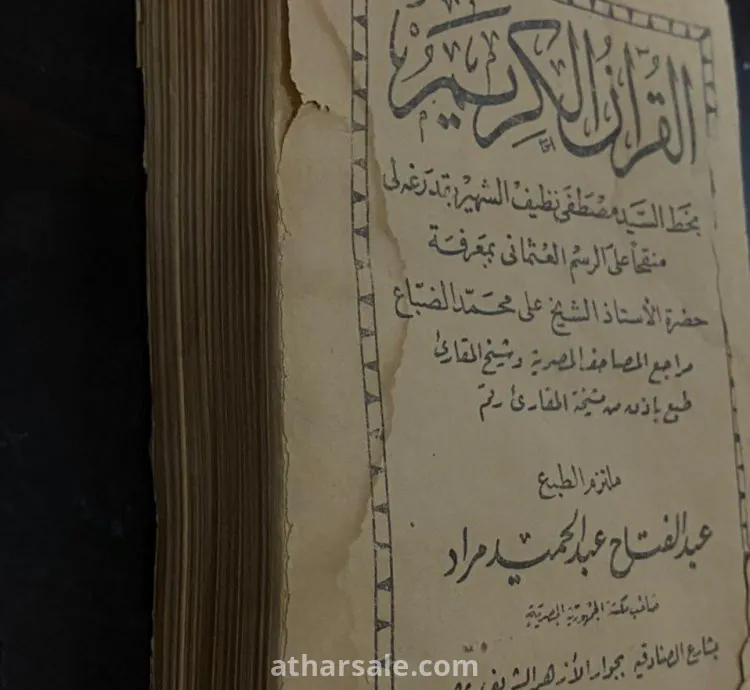 القرآن الكريم
بخط السيد مصطفى نظيف الشهير بقدرغه لى
منقحاً على الرسم العثمانى بمعرفة
حضرة الأستاذ الشيخ على محمد الضباع
مراجع المصاحف المصرية وشيخ المقارئ
طبع باذن من مشيخة المقارئ رقم
ملتزم الطبع
عبد الفتاح عبد الحميد مراد
صاحب مكتبة الجمهورية المصرية
بشارع الصنادقية بجوار الأزهر الشريف
atharsale.com